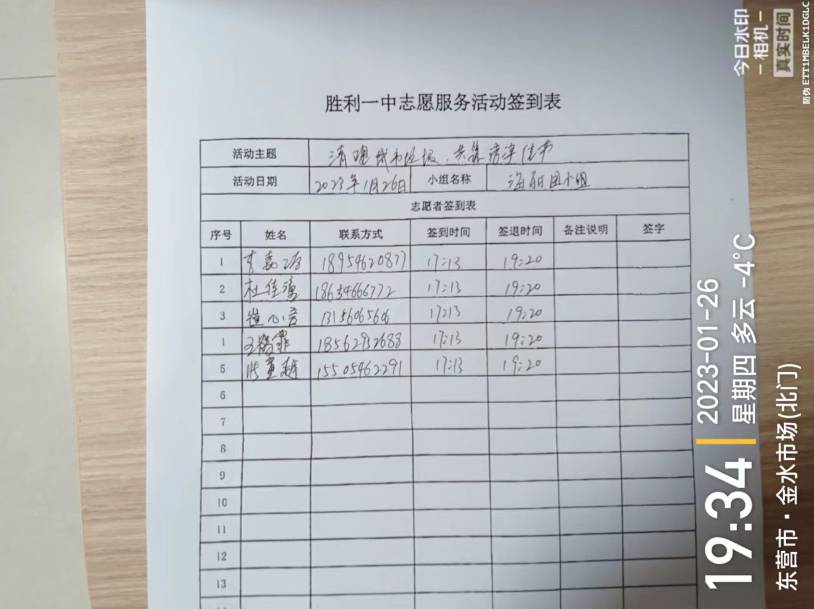 胜利一中志愿服务活动签到表
活动主题 清理城市垃圾
活动日期 2023年1月26日 小组名称 小组
志愿者签到表
序号 姓名 联系方式 签到时间 签退时间 备注说明 签字
1 18954620877 17:13 19:20
2 杜佳 18634666772 17:13 19:20
3 1315646564 17:13 19:20
1 王 18562932688 17:13 19:20
5 15505462291 17:13 19:20
6
7
8
9
10
11
12
13
今日水印
相机
真实时间
防伪 ET11MBELK1DGLC
19:34
2023-01-26
星期四 多云 -4°C
东营市·金水市场(北门)